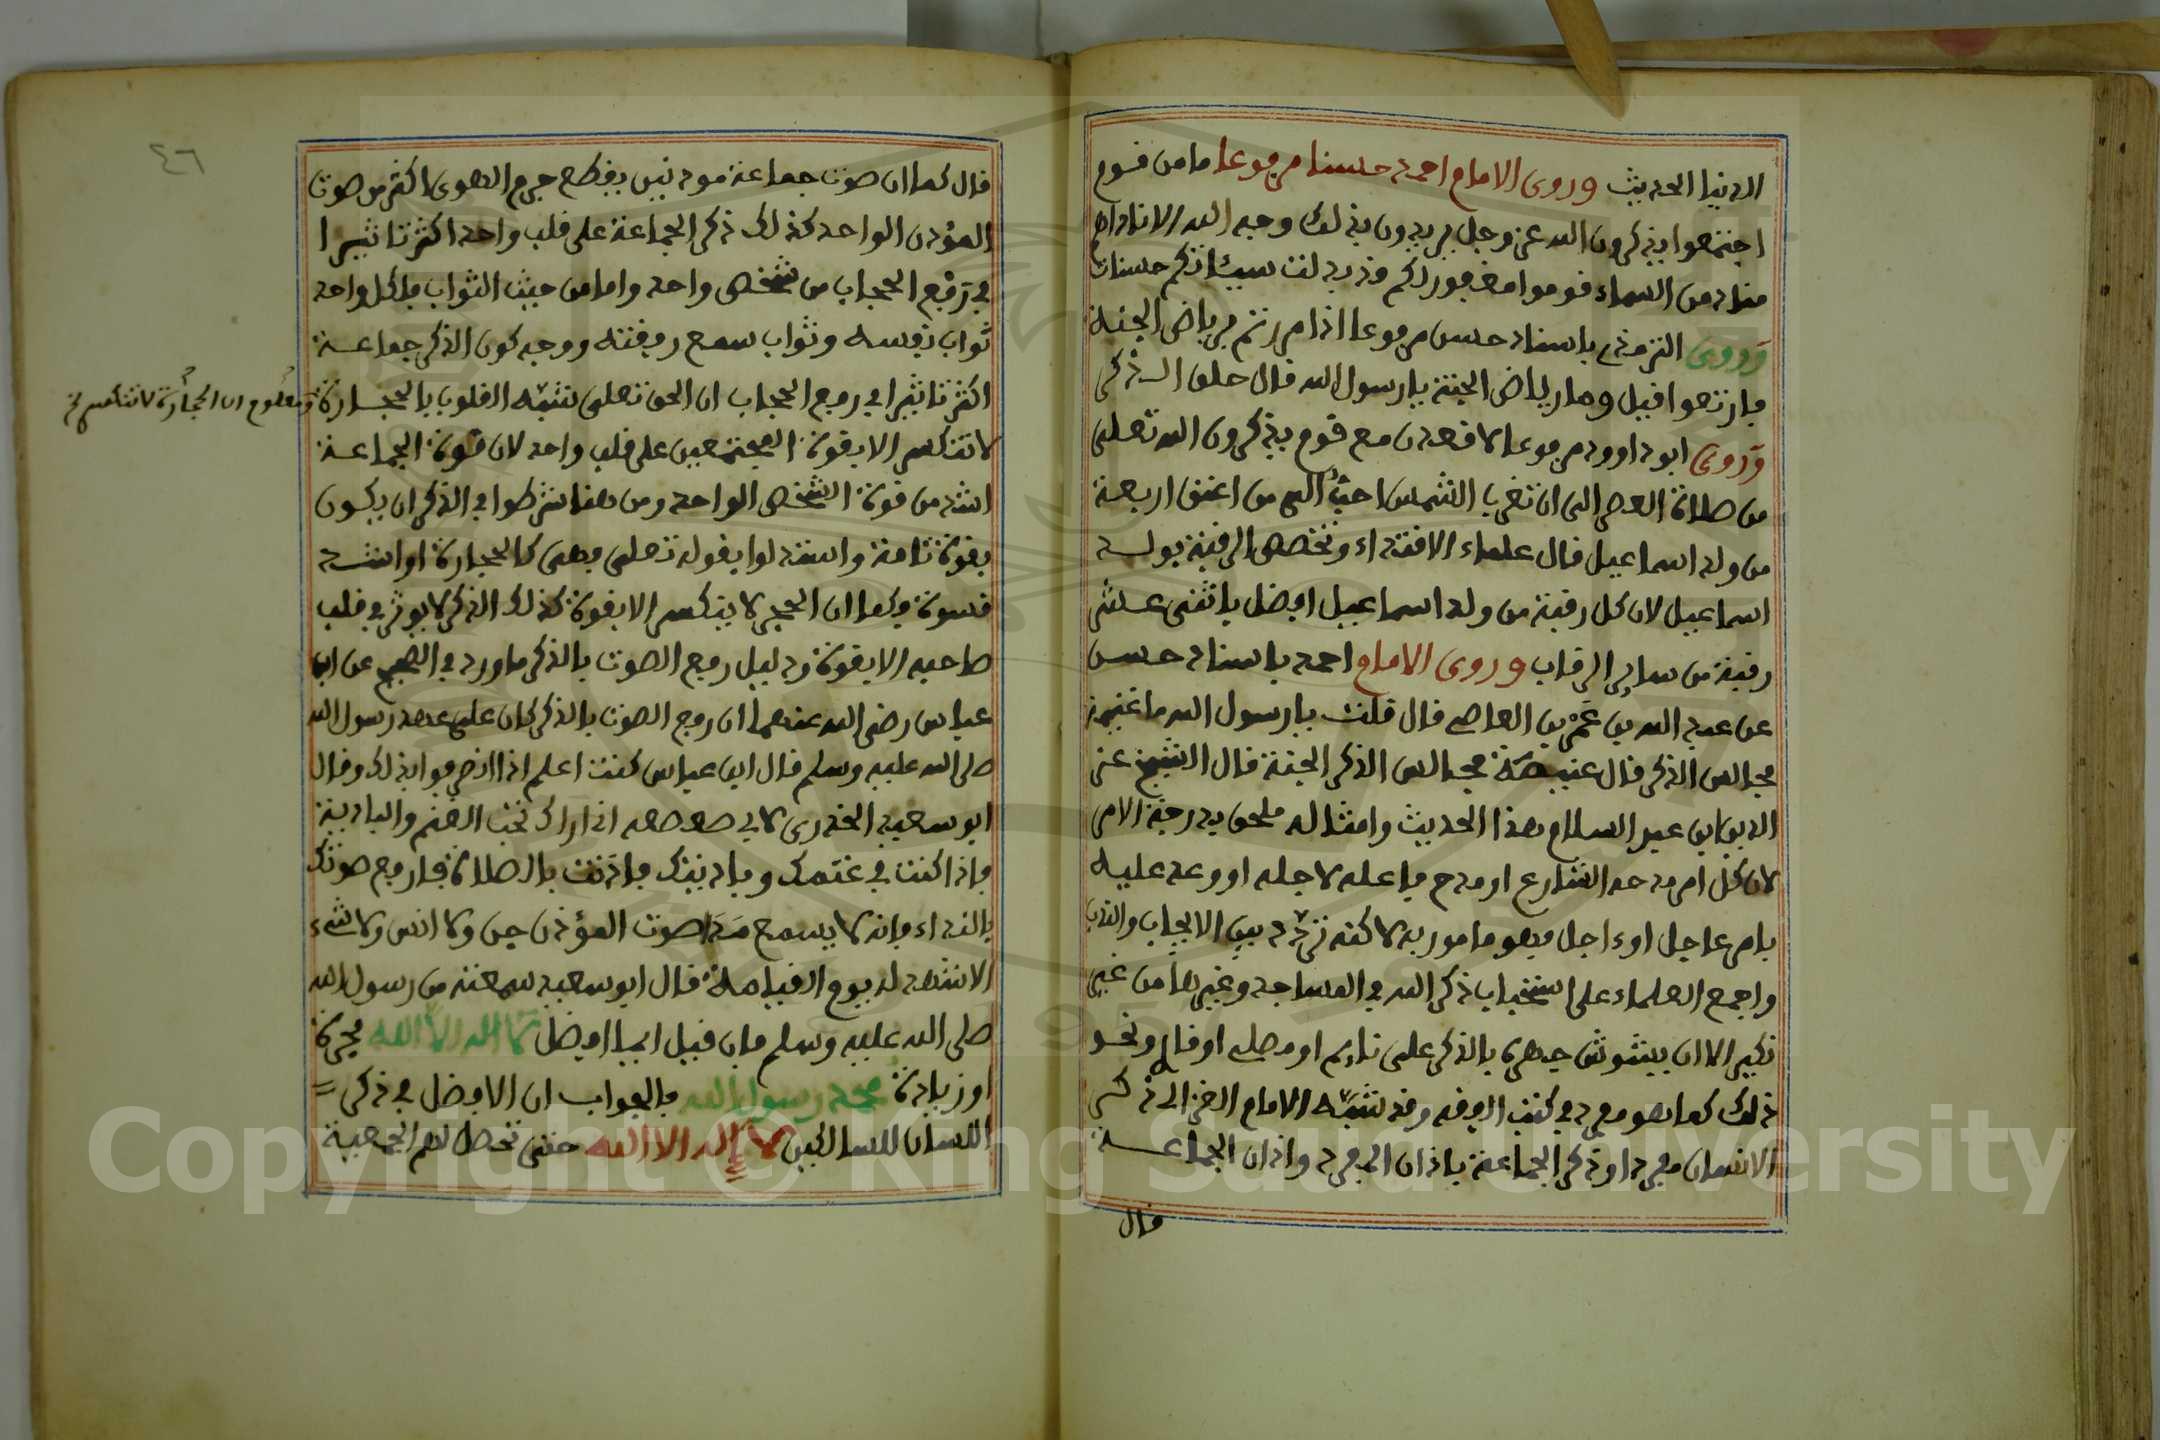 الدنيا الحديث وروى الامام احمد حسنا مرفوعا ما من قوم
اجتمعوا يذكرون الله عز وجل يريدون بذلك وجه الله الا ناداهم
مناد من السماء قوموا مغفور لكم وقد بدلت سيئاتكم حسنات
وروى الترمذي باسناد حسن مرفوعا اذا مررتم برياض الجنة
فارتعوا قيل وما رياض الجنة يا رسول الله قال حلق الذكر
وروى ابو داوود مرفوعا لا قعدن مع قوم يذكرون الله تعلى
من صلاة العصر الى ان تغرب الشمس احب الي من اعتق اربعة
من ولد اسماعيل قال علماء الاقتداء وتخصص الرقبة بولد
اسماعيل لان كل رقبة من ولد اسماعيل افضل باثنى عشر
رقبة من سائر الرقاب وروى الامام احمد باسناد حسن
عن عبد الله بن عمر بن العاصي قال قلت يا رسول الله ما غنيمة
مجالس الذكر قال غنيمة مجالس الذكر الجنة قال الشيخ عز
الدين ابن عبد السلام هذا الحديث وامثاله ملحق بدرجة الامر
لان كل امر مدحه الشارع او مدح فاعله لاجله او وعد عليه
بامر عاجل او ءاجل فهو مامور به لاكنه تردد بين الايجاب والندب
واجمع العلماء على استحباب ذكر الله في المساجد وغيرها من غير
نكير الا ان يشوش جهره بالذكر على نائم او مصلي او قارء ونحو
ذلك كما هو مقرر في كتب الفقه وقد شبه الامام الغزالي ذكر
الانسان مفردا وذكر الجماعة باذان المفرد واذان الجماعة
قال
٤٦
قال كما ان صوت جماعة موذنين يقطع جرم الهوى اكثر من صوت
المؤذن الواحد كذلك ذكر الجماعة على قلب واحد اكثر تاثيرا
في رفع الحجاب من شخص واحد واما من حيث الثواب فلكل واحد
ثواب نفسه وثواب سمع رفقته ووجه كون الذكر جماعة
اكثر تاثيرا في رفع الحجاب ان الحق تعلى شبه القلوب بالحجارة
ومعلوم ان الحجارة لا تنكسر الخ
لا تنكسر الا بقوة المجتمعين على قلب واحد لان قوة الجماعة
اشد من قوة الشخص الواحد ومن هنا شرطوا في الذكر ان يكون
بقوة تامة واستدلوا بقوله تعلى فهي كالحجارة او اشد
قسوة فكما ان الحجر لا ينكسر الا بقوة كذلك الذكر لا يوثر في قلب
صاحبه الا بقوة ودليل رفع الصوت بالذكر ما ورد في الصحيح عن ابن
عباس رضي الله عنهما ان رفع الصوت بالذكر كان على عهد رسول الله
صلى الله عليه وسلم قال ابن عباس كنت اعلم اذا انصرفوا بذلك وقال
ابو سعيد الخدري لابي صعصعه اني اراك تحب الغنم والبادية
فاذا كنت في غنمك وباديتك فاذنت بالصلاة فارفع صوتك
بالنداء فانه لا يسمع مدا صوت المؤذن جن ولا انس ولا شيء
الا شهد له يوم القيامة قال ابو سعيد سمعته من رسول الله
صلى الله عليه وسلم فان قيل ايما افضل لا اله الا الله مجردة
او زيادة محمد رسول الله فالجواب ان الافضل في ذكر
اللسان للسالكين لا إله الا الله حتى تحصل لهم الجمعية
Copyright © King Saud University